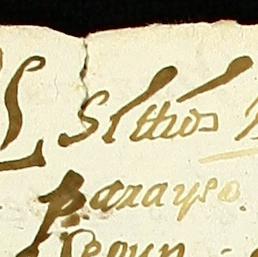 Sittios
parayso
Segun